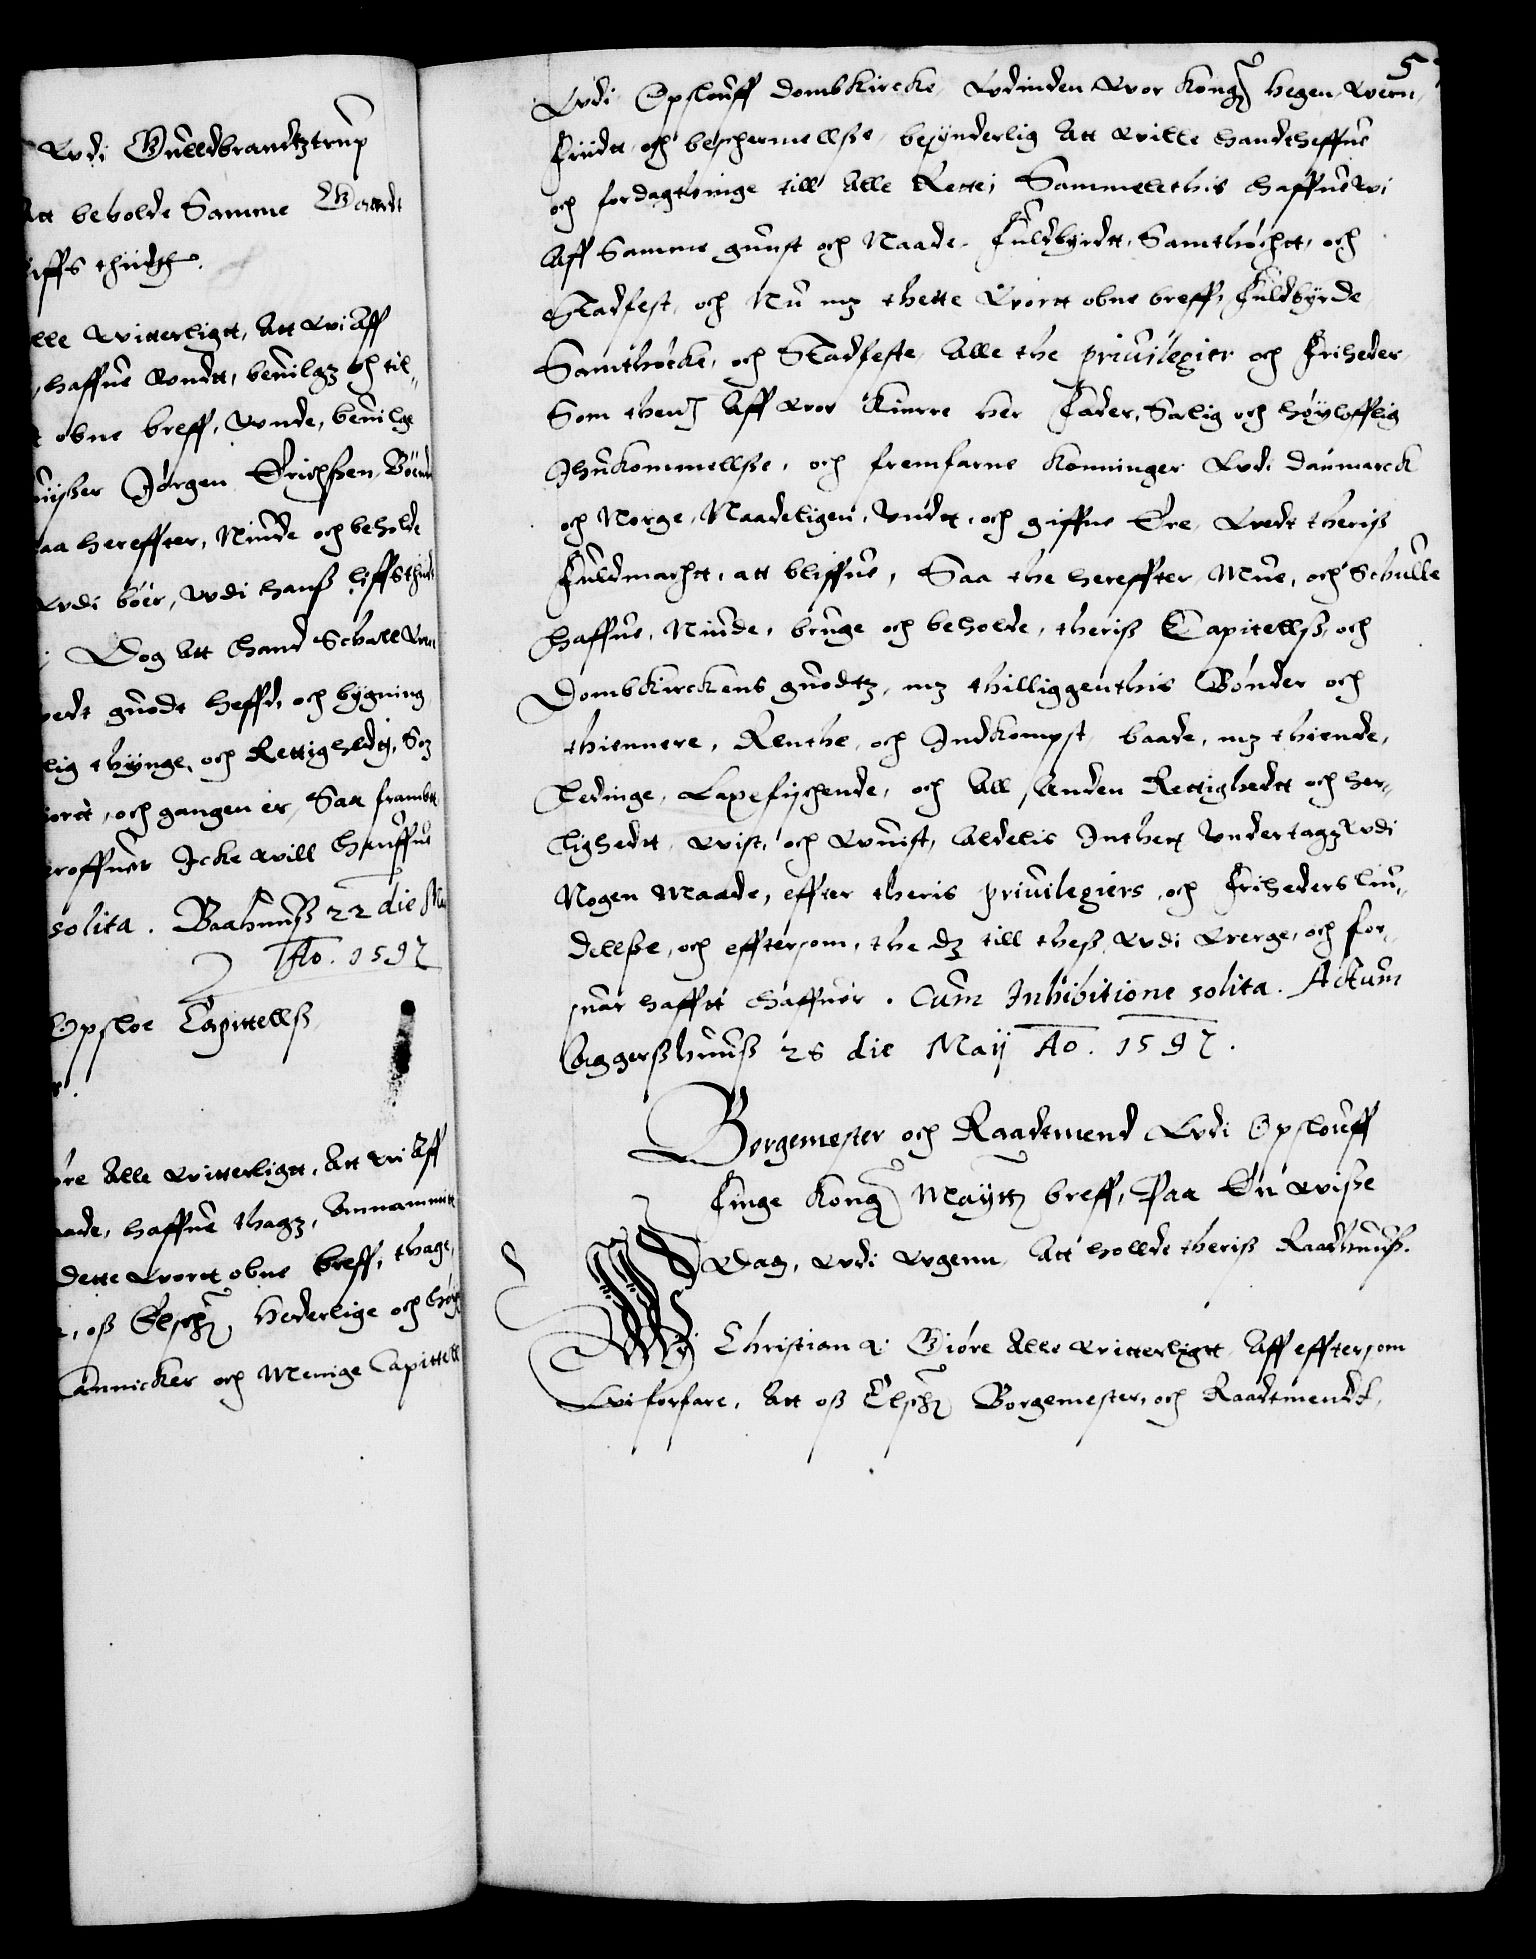 Vdi Gulldbrandtztrup
Att beholde Samme Gaardt
liffs thiidtt.
alle vitterligtt, Att vi Aff
haffue vndt, beuilgz och til,,
obne breff, vnde, beuilge
Jørgen Erichßen, Bønn
saa hereffter, Niude och beholde
vdi bøer, vdi hans liffsthidt
Dog Att hand Schall
vedt guodt heffd, och bygning
lig thynge, och Rettighedtz, Sz
giortt, och gangen er, Saa frambt
Icke will haffue
solita. Baahuuß 22 die
Ao. 1597
Opsloe Capittellß
Giøre Alle vitterligtt, Att vi Aff
Naade, haffue thagz, Annammitt
dette vortt obne breff, thage,
oß Elschz Hederlige och
Cannicker och Menige Capittell
5
Vdi Opslouff Dombkircke, Vdinden vor Kongz hegen, vern,
Friidtt och beschermellße, besynderlig Att ville handtheffue
och fordagthinge till Alle Rette, Sammeledthis haffue vi
Aff Samme gunst och Naade, Fuldbyrdtt, Samthøchtt, och
Stadfest, och Nu mz thette vortt obne breff, Fuldbyrde
Samthøcke, och Stadfeste, Alle the priuilegier och Friheder
Som thenz Aff vor Kierre Her Fader, Salig och høyloffliig
Ihukommellße, och fremfarne Konninger Vdi Danmarck
och Norge, Naadeligen, Vndtt, och giffne Ere, Vedt theriß
Fuldmachtt, att bliffue, Saa the hereffter Mue, och Schulle
haffue, Niude, bruge och beholde, theriß Capitellß, och
Dombkirckens guodtz, mz thilliggenthis Bønder och
thiennere, Renthe, och Indkompst, baade, mz thiende,
Ledinge, Laxefischende, och All Anden Rettighedtt och her,,
lighedtt, vist, och vuist, Aldelis Inthett Vndertagz Vdi
Nogen Maade, effter theris priuilegiers, och Friheders liu,,
dellße, och efftersom, the dz till theß, Vdi verge, och for,,
suar hafftt haffuer. Cum Inhibitione solita. Actum
Aggerßhuuß 28 die Maij Ao. 1597.
Borgemester och Raadtmend Vdi Opslouff
Finge Kongz Maytz breff, Paa En viße
Dag, vdi vgenn, Att hollde theriß Raadhuuß.
Wy Christian 4. Giøre Alle vitterligtt, Aff effttersom
Vi forfare, Att oß Elschz Borgemester, och Raadtmendt,